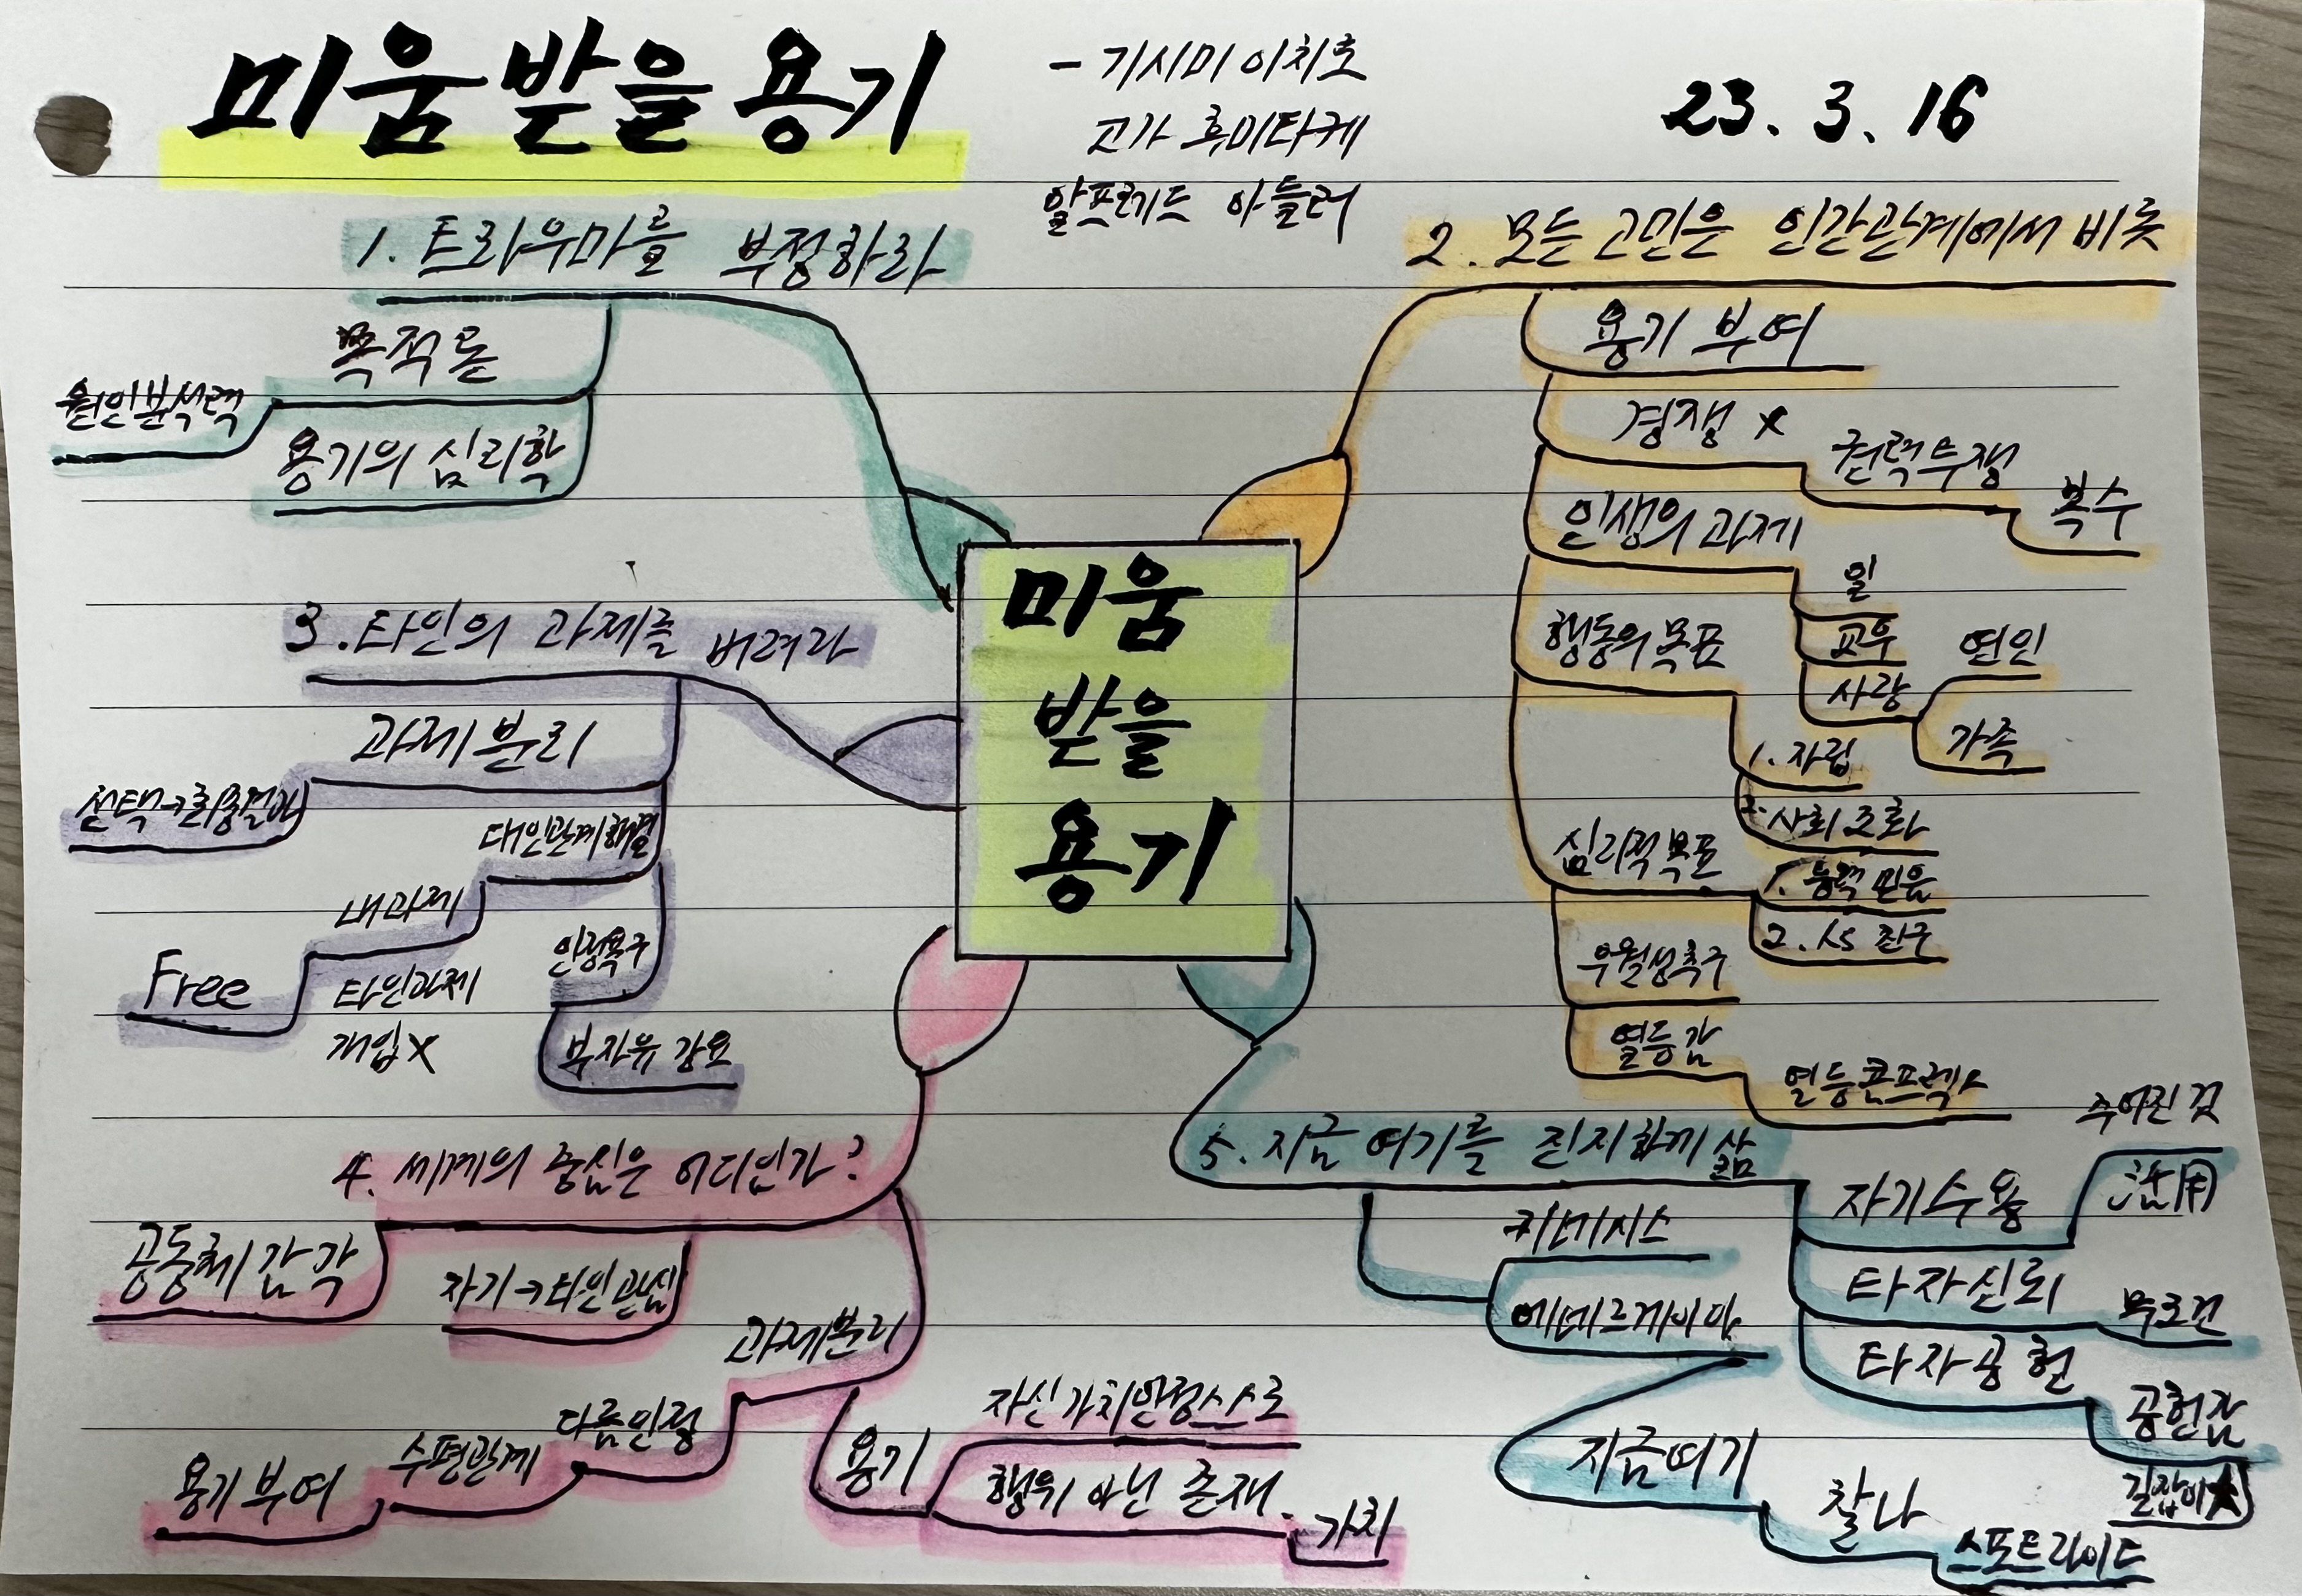 미움받을 용기
- 기시미 이치로
고가 후미타케
알프레드 아들러
23. 3. 16
1. 트라우마를 부정하라
목적론
원인분석력
용기의 심리학
2. 모든 고민은 인간관계에서 비롯
용기 부여
경쟁 x
권력투쟁
복수
인생의 과제
일
교우
사랑
연인
가족
행동의 목표
1. 자립
2. 사회 조화
심리적 목표
1. 능력 믿음
2. 친구
우월성 추구
열등감
열등콤프렉스
미움
받을
용기
3. 타인의 과제를 버려라
과제 분리
선택→
대인관계 해결
내과제
타인과제
개입X
Free
인정욕구
부자유 강요
4. 세계의 중심은 어디인가?
공동체 감각
자기→타인 관심
과제분리
다름인정
수평관계
용기 부여
용기
자신가치 인정 스스로
행위 아닌 존재.
가치
5. 지금 여기를 진지하게 삶
키네시스
에네르게이아
지금여기
찰나
스포트라이트
자기수용
주어진 것
活用
타자신뢰
무조건
타자공헌
공헌감
길잡이★